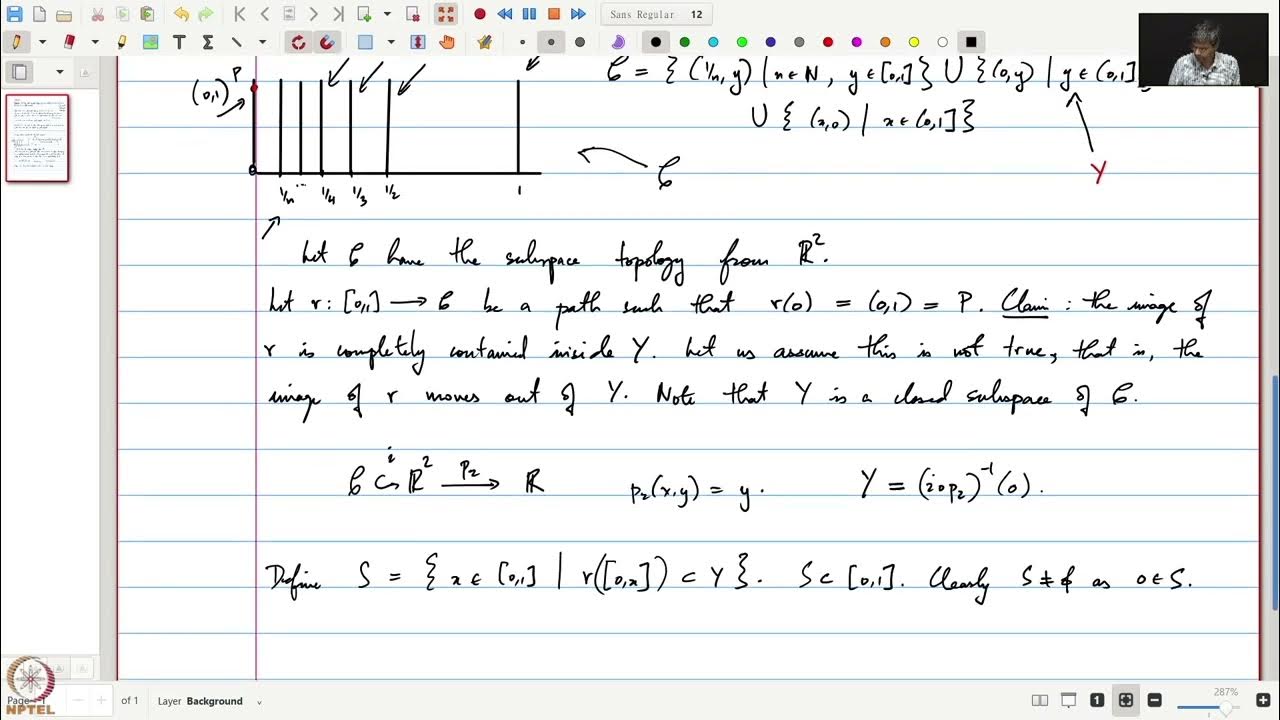 Sans Regular 12
(0,1) P
𝒞 = { (1/n, y) | n ∈ N, y ∈ [0,1] } ∪ { (0,y) | y ∈ (0,1]
∪ { (x,0) | x ∈ (0,1] }
𝒞
Y
1/n ... 1/4 1/3 1/2 1
Let 𝒞 have the subspace topology from ℝ².
Let r : [0,1] → 𝒞 be a path such that r(0) = (0,1) = P. Claim : the image of
r is completely contained inside Y. Let us assume this is not true, that is, the
image of r moves out of Y. Note that Y is a closed subspace of 𝒞.
𝒞 ↪ⁱ ℝ² →ᵖ² ℝ p₂(x,y) = y. Y = (i∘p₂)⁻¹(0).
Define S = { x ∈ [0,1] | r([0,x]) ⊂ Y }. S ⊂ [0,1]. Clearly S ≠ ϕ as 0 ∈ S.
NPTEL
Page of 1 Layer Background 287%